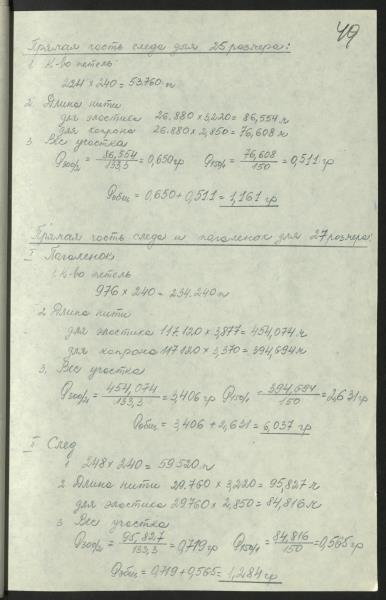 49
Прямая часть следа для 25 размера:
1. К-во петель:
224 × 240 = 53.760 п
2. Длина нити
для эластика 26.880 × 3,220 = 86,554 м
для капрона 26.880 × 2,850 = 76,608 м
3. Вес участка
= 86,554 / 133,3 = 0,650 гр = 76,608 / 150 = 0,511 гр
Pобщ = 0,650 + 0,511 = 1,161 гр
Прямая часть следа и паголенок для 27 размера:
I Паголенок
1. К-во петель
976 × 240 = 234.240 п
2. Длина нити
для эластика 117.120 × 3,877 = 454,074 м
для капрона 117.120 × 3,370 = 394,694 м
3. Вес участка
= 454,074 / 133,3 = 3,406 гр = 394,694 / 150 = 2,631 гр
Pобщ = 3,406 + 2,631 = 6,037 гр
След
1. 248 × 240 = 59.520 п
2. Длина нити 29.760 × 3,220 = 95,827 м
для эластика 29.760 × 2,850 = 84,816 м
3. Вес участка
= 95,827 / 133,3 = 0,719 гр = 84,816 / 150 = 0,565 гр
Pобщ = 0,719 + 0,565 = 1,284 гр